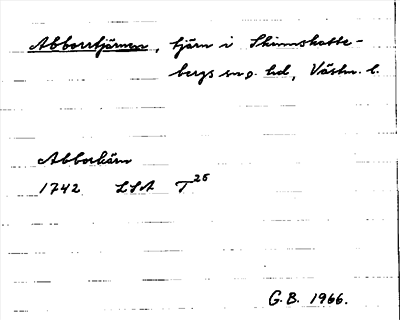 Abborrtjärnen, tjärn i Skinnskatte-
bergs sn o. hd, Västm. l.
Abborkärn
1742 LSA T 25
G. B. 1966.